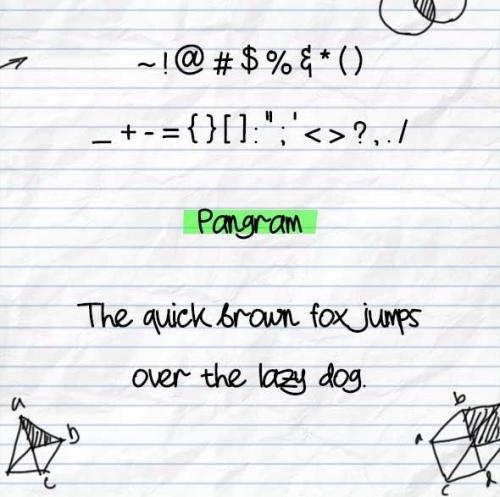 ~!@#$%&*()
_+-={}[]:";'<>?,./
Pangram
The quick brown fox jumps
over the lazy dog.
a
b
c
b
a
c
d